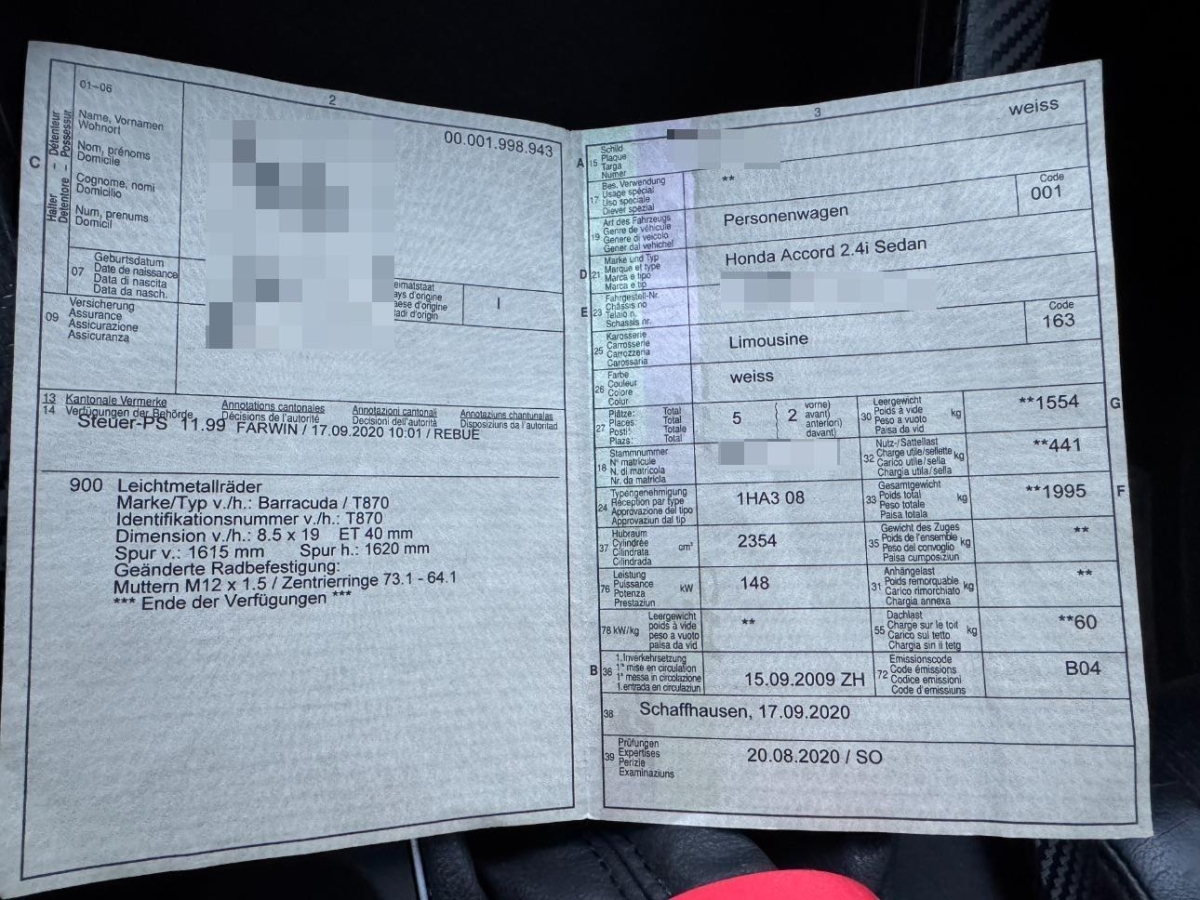 2
01–06
Halter – Détenteur
Detentore – Possessur
C
Name, Vornamen
Wohnort
Nom, prénoms
Domicile
Cognome, nomi
Domicilio
Num, prenums
Domicil
00.001.998.943
07
Geburtsdatum
Date de naissance
Data di nascita
Data da nasch.
eimatstaat
ays d'origine
aese d'origine
adi d'origin
I
09
Versicherung
Assurance
Assicurazione
Assicuranza
13 Kantonale Vermerke Annotations cantonales Annotazioni cantonali Annotaziuns chantunalas
14 Verfügungen der Behörde Décisions de l'autorité Decisioni dell'autorità Disposiziuns da l'autoritad
Steuer-PS 11.99 FARWIN / 17.09.2020 10:01 / REBUE
900 Leichtmetallräder
Marke/Typ v./h.: Barracuda / T870
Identifikationsnummer v./h.: T870
Dimension v./h.: 8.5 x 19 ET 40 mm
Spur v.: 1615 mm Spur h.: 1620 mm
Geänderte Radbefestigung:
Muttern M12 x 1.5 / Zentrierringe 73.1 - 64.1
*** Ende der Verfügungen ***
3
A
15
Schild
Plaque
Targa
Numer
weiss
17
Bes. Verwendung
Usage spécial
Uso speciale
Diever spezial
**
19
Art des Fahrzeugs
Genre de véhicule
Genere di veicolo
Gener dal vehichel
Personenwagen
Code
001
D
21
Marke und Typ
Marque et type
Marca e tipo
Marca e tip
Honda Accord 2.4i Sedan
E
23
Fahrgestell-Nr.
Châssis no
Telaio n.
Schassis nr.
25
Karosserie
Carrosserie
Carrozzeria
Carossaria
Limousine
Code
163
26
Farbe
Couleur
Colore
Colur
weiss
27
Plätze: Total
Places: Total
Posti: Totale
Plazs: Total
5
2
vorne)
avant)
anteriori)
davant)
30
Leergewicht
Poids à vide
Peso a vuoto
Paisa da vid
kg
**1554
G
18
Stammnummer
N° matricule
N. di matricola
Nr. da matricla
32
Nutz-/Sattellast
Charge utile/sellette
Carico utile/sella
Chargia utila/sella
kg
**441
24
Typengenehmigung
Réception par type
Approvazione del tipo
Approvaziun dal tip
1HA3 08
33
Gesamtgewicht
Poids total
Peso totale
Paisa totala
kg
**1995
F
37
Hubraum
Cylindrée
Cilindrata
Cilindrada
cm³
2354
35
Gewicht des Zuges
Poids de l'ensemble
Peso del convoglio
Paisa cumposiziun
kg
**
76
Leistung
Puissance
Potenza
Prestaziun
kW
148
31
Anhängelast
Poids remorquable
Carico rimorchiato
Chargia annexa
kg
**
78 kW/kg
Leergewicht
poids à vide
peso a vuoto
paisa da vid
**
55
Dachlast
Charge sur le toit
Carico sul tetto
Chargia sin il tetg
kg
**60
B
36
1.Inverkehrsetzung
1re mise en circulation
1a messa in circolazione
1.entrada en circulaziun
15.09.2009 ZH
72
Emissionscode
Code émissions
Codice emissioni
Code d'emissiuns
B04
38
Schaffhausen, 17.09.2020
39
Prüfungen
Expertises
Perizie
Examinaziuns
20.08.2020 / SO